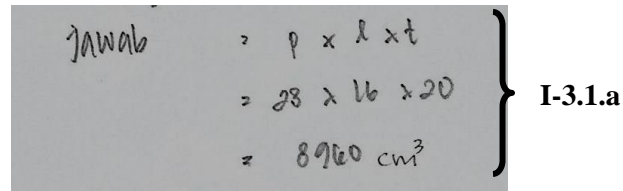 Jawab = p x l x t
= 28 x 16 x 20
= 8960 cm³
I-3.1.a